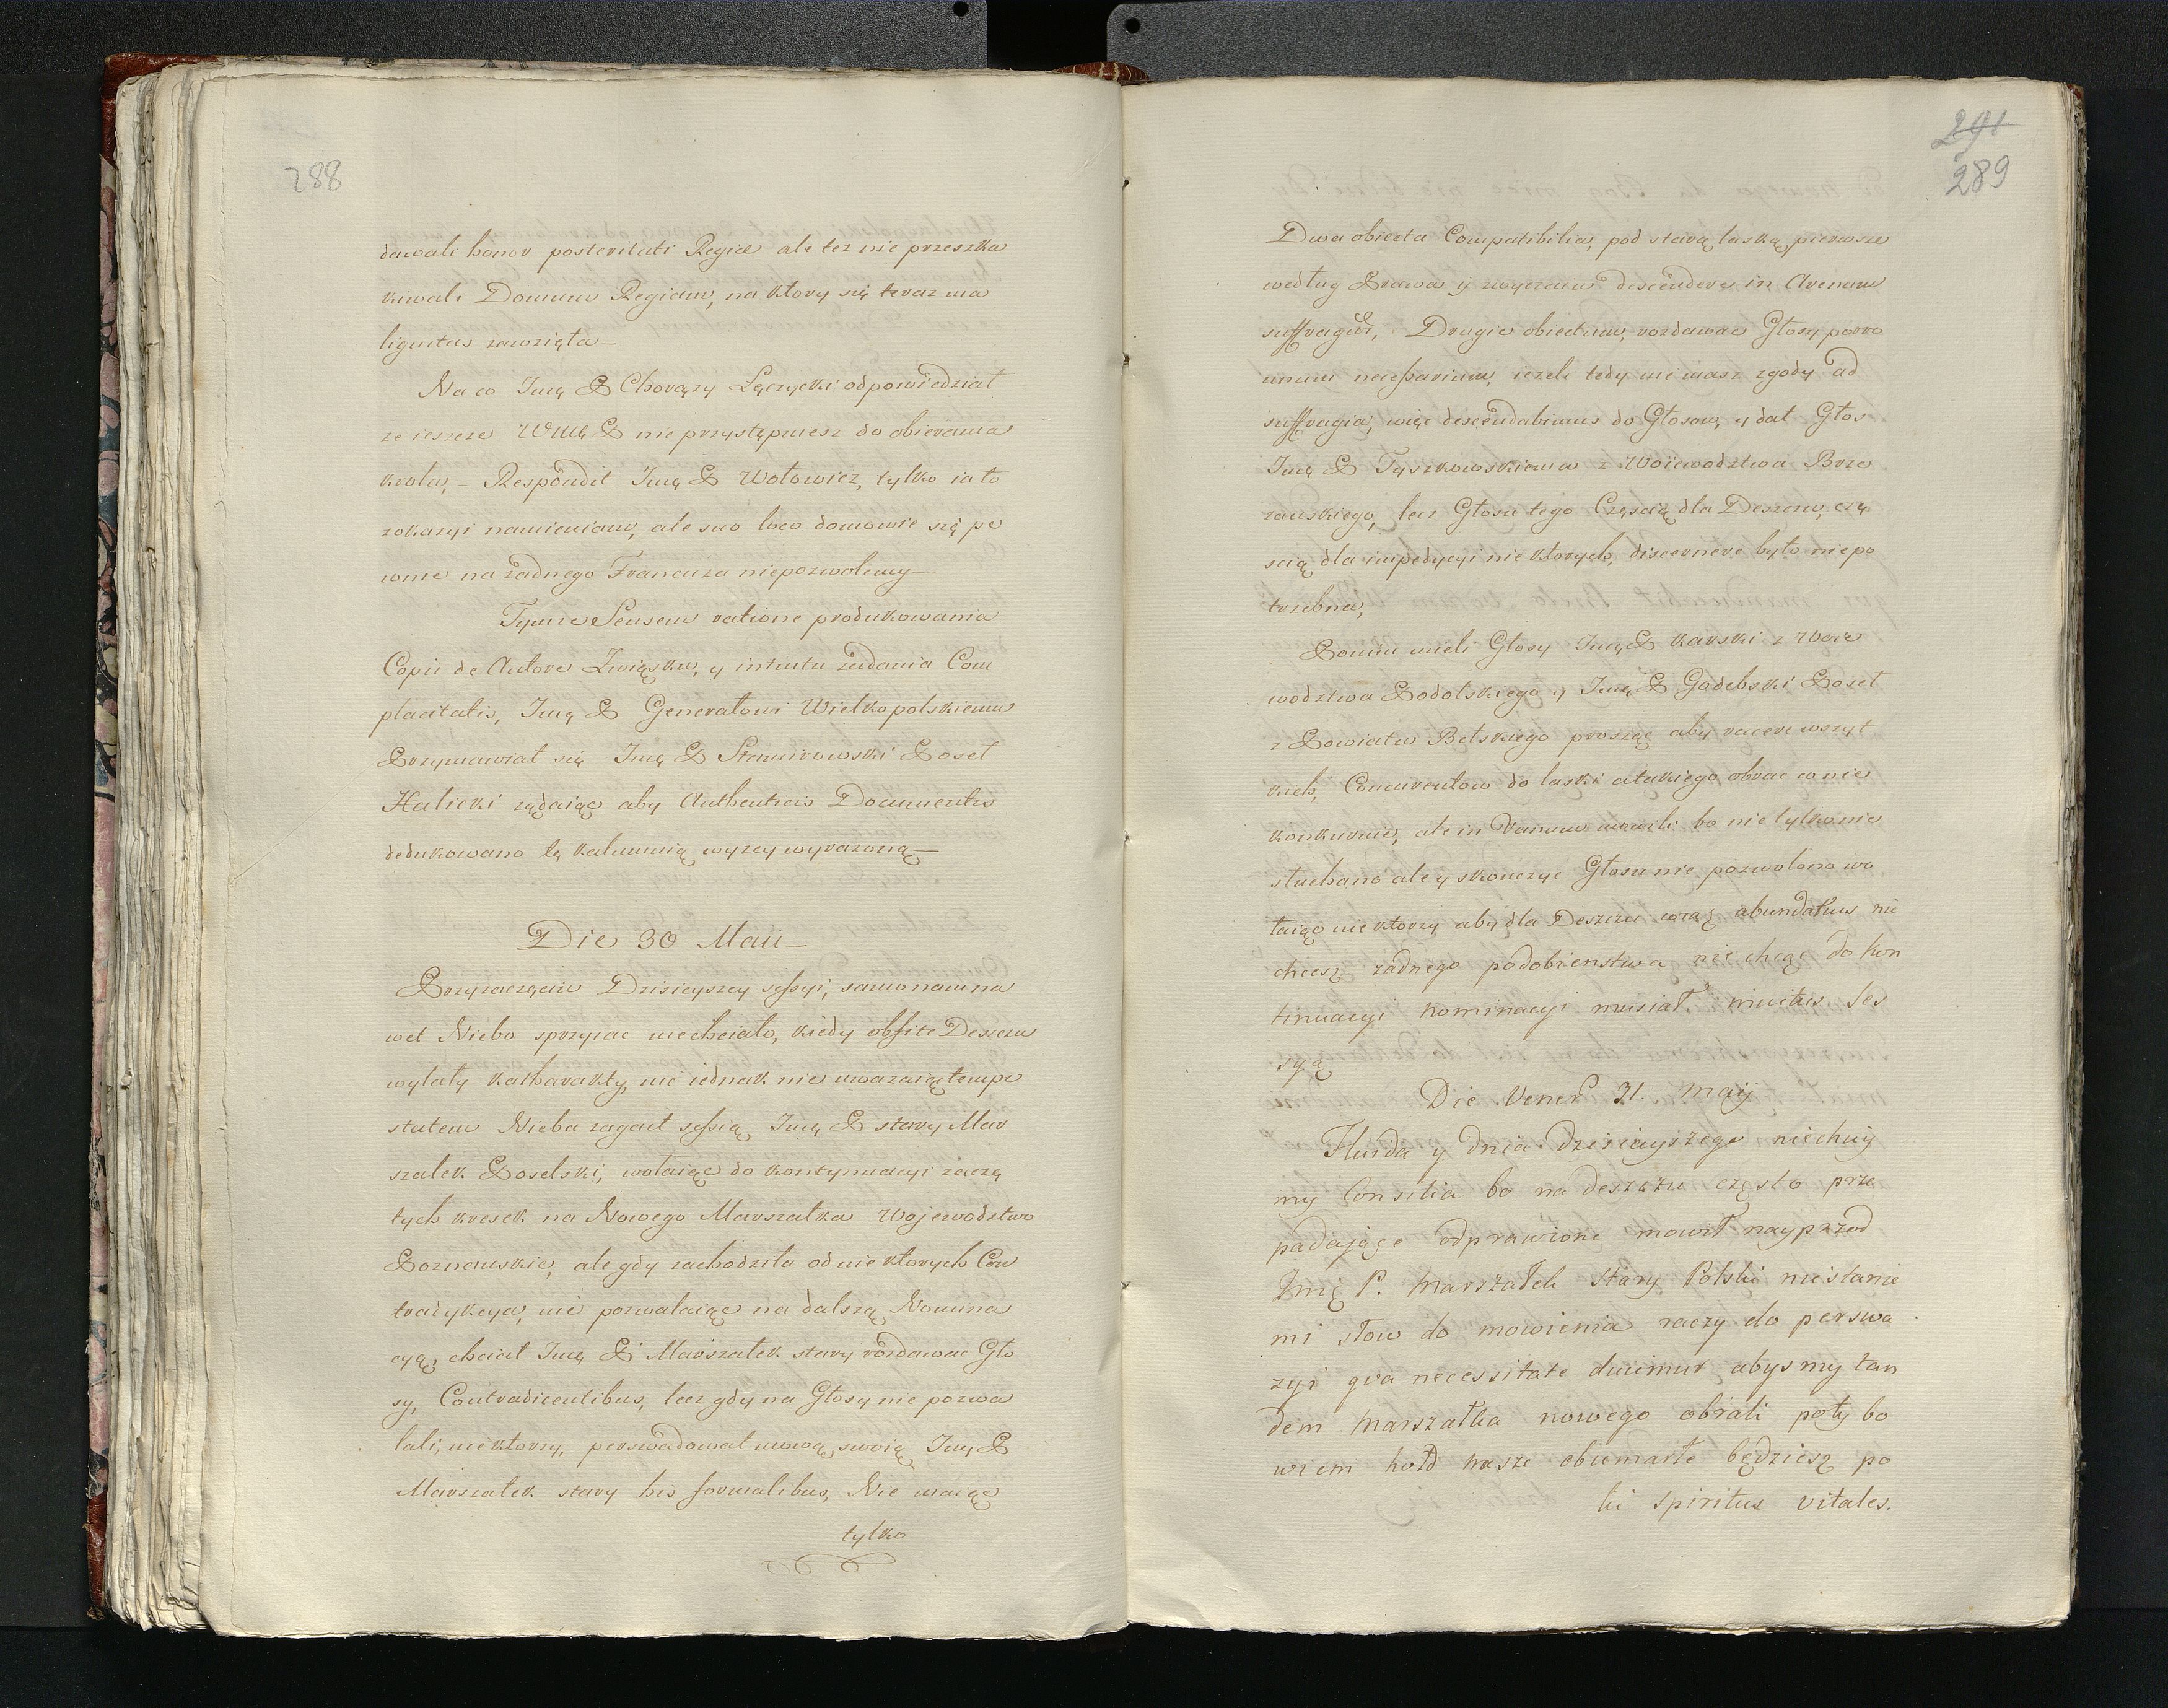 288
dawali honor posteritati Regiæ ale też nie przeszka
kiwali Domum Regiam, na ktory się teraz ma
lignitas zawzięta—
Na co Imę P Chorąży Łęczycki odpowiedział
ze ieszcze WMę P nie przystępuiesz do obierania
krola,– Respondit Imę P Wołowicz, tylko ia to
zokazyi namieniam, ale suo loco domowie się pe
wnie na żadnego Francuza niepozwolemy—
Tymże Sensem ratione produkowania
Copii de Autore Związku, y intuitu żądania Com
placitatis, Imę P Generałowi Wielkopolskiemu
Przymawiał się Imę P Siemirowski Poseł
Halicki żądaiąc aby Authenticis Documentis
dedukowano tę kalumnią wyzey wyrazoną—
Die 30 Maii—
Przyzaczęciu Dzisieyszey sessyi, samo nam na
wet Niebo sprzyiac niechciało, kiedy obfite Deszczu
wylały katharakty, nic iednak nie uwazaiąc tempe
statem Nieba zagaił sessią Imę P stary Mar
szałek Poselski, wołaiąc do kontynuacyi zaczę
tych kresek na Nowego Marszałka Wojewodztwo
Poznanskie, ale gdy zachodziła od niektorych Con
tradykcya, nie pozwalaiąc na dalszą Nomina
cyą, chciał Imę P Marszałek stary rozdawac Gło
sy, Contradicentibus, lecz gdy na Głosy nie pozwa
lali, niektorzy, perswadował mową swoią Imę P
Marszałek stary his formalibus, Nie maiąc
tylko
291
289
Dwa obiecta Compatibilia, pod starą laską, pierwsze
według Prawa ij zwyczaiu descendere in Arenam
suffragiū, Drugie obiectum, rozdawac Głosy porro
unum necessarium, iezeli tedy nie masz zgody ad
suffragia, więc descendabimus do Głosow, y dał Głos
Imę P Tyszkowskiemu z Woiewodztwa Brze
zanskiego, lecz Głosu tego Częscią dla Deszczu, czę
scią dla impedycyi niektorych, discernere było niepo
trzebna,
Ponim mieli Głosy Imę P Karski z Woie
wodztwa Podolskiego y Imę P Godebski Poseł
z Powiatu Bełskiego prosząc aby racere wszyt
kich, Concurentow do laski a takiego obrac co nie
konkuruie, ale in Vanum mowili bo nie tylko nie
słuchano ale y skonczyc Głosu nie pozwolono wo
łaiąc niektorzy aby dla Deszczu coraz abundatius nie
chcesz zadnego podobienstwa nie chcąc do kon
tinuacyi nominacyi musiał inuitus ses
syą
Die Vener 31. Maij
Fluida y dnia dzisiayszego niechwij
my Consilia bo na deszczu często prze
padające odprawione mowił nayprzod
Imę P. Marszałek stary Polski niestanie
mi słow do mowienia raczy do perswa
zyi qva necessitate ducimur abysmy tan
dem Marszałka nowego obrali poty bo
wiem hołd nasze obumarłe będziesz po
ki spiritus vitales.